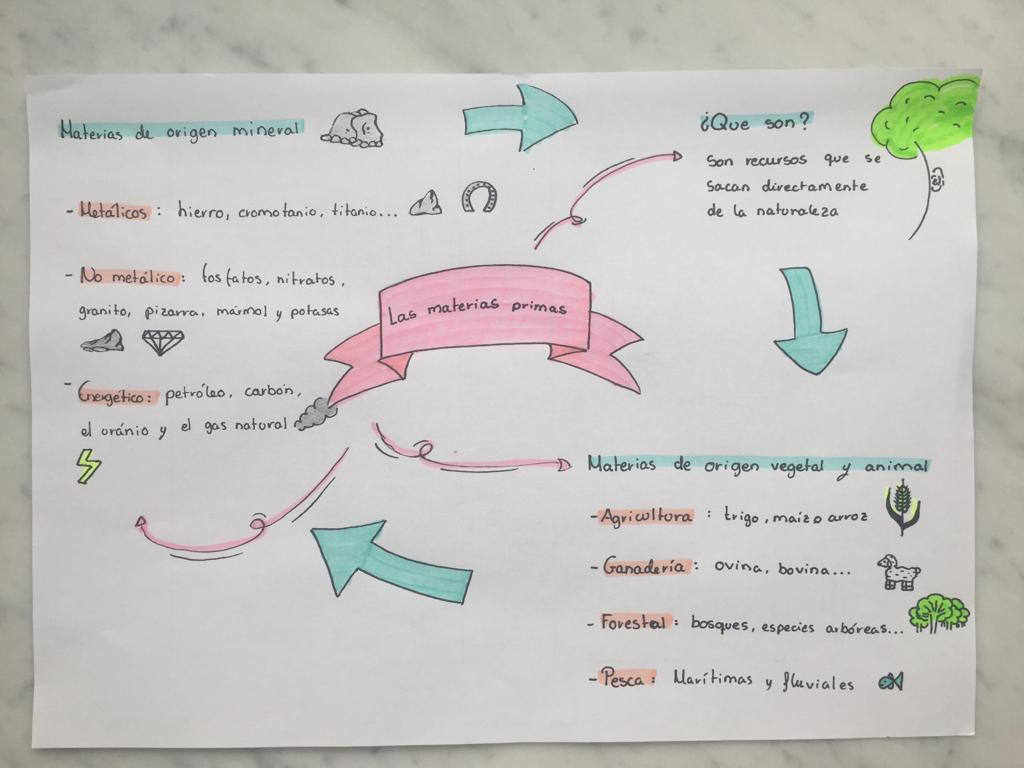 Las materias primas
¿Que son?
Son recursos que se
sacan directamente
de la naturaleza
Materias de origen vegetal y animal
- Agricultura : trigo, maíz o arroz
- Ganadería : ovina, bovina...
- Forestal : bosques, especies arbóreas...
- Pesca : Marítimas y fluviales
Materias de origen mineral
- Metálicos : hierro, cromotanio, titanio...
- No metálico : fosfatos, nitratos,
granito, pizarra, mármol y potasas
- Energético : petróleo, carbón,
el oránio y el gas natural